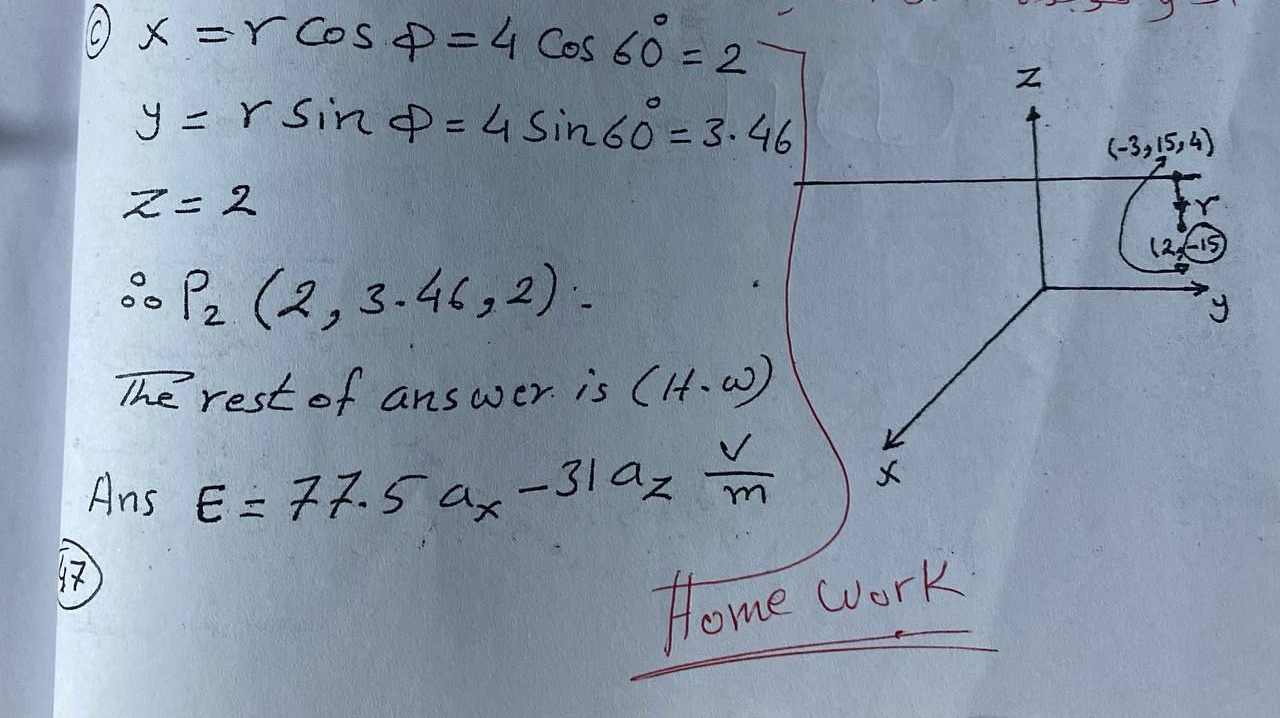 ⓒ x = r cos Φ = 4 cos 60° = 2
y = r sin Φ = 4 sin 60° = 3.46
z = 2
∴ P₂ (2, 3.46, 2) :-
The rest of answer is (H.w)
Ans E = 77.5 aₓ - 31 a_z V/m
47
Home work
z
(-3, 15, 4)
r
(2, -15
y
x